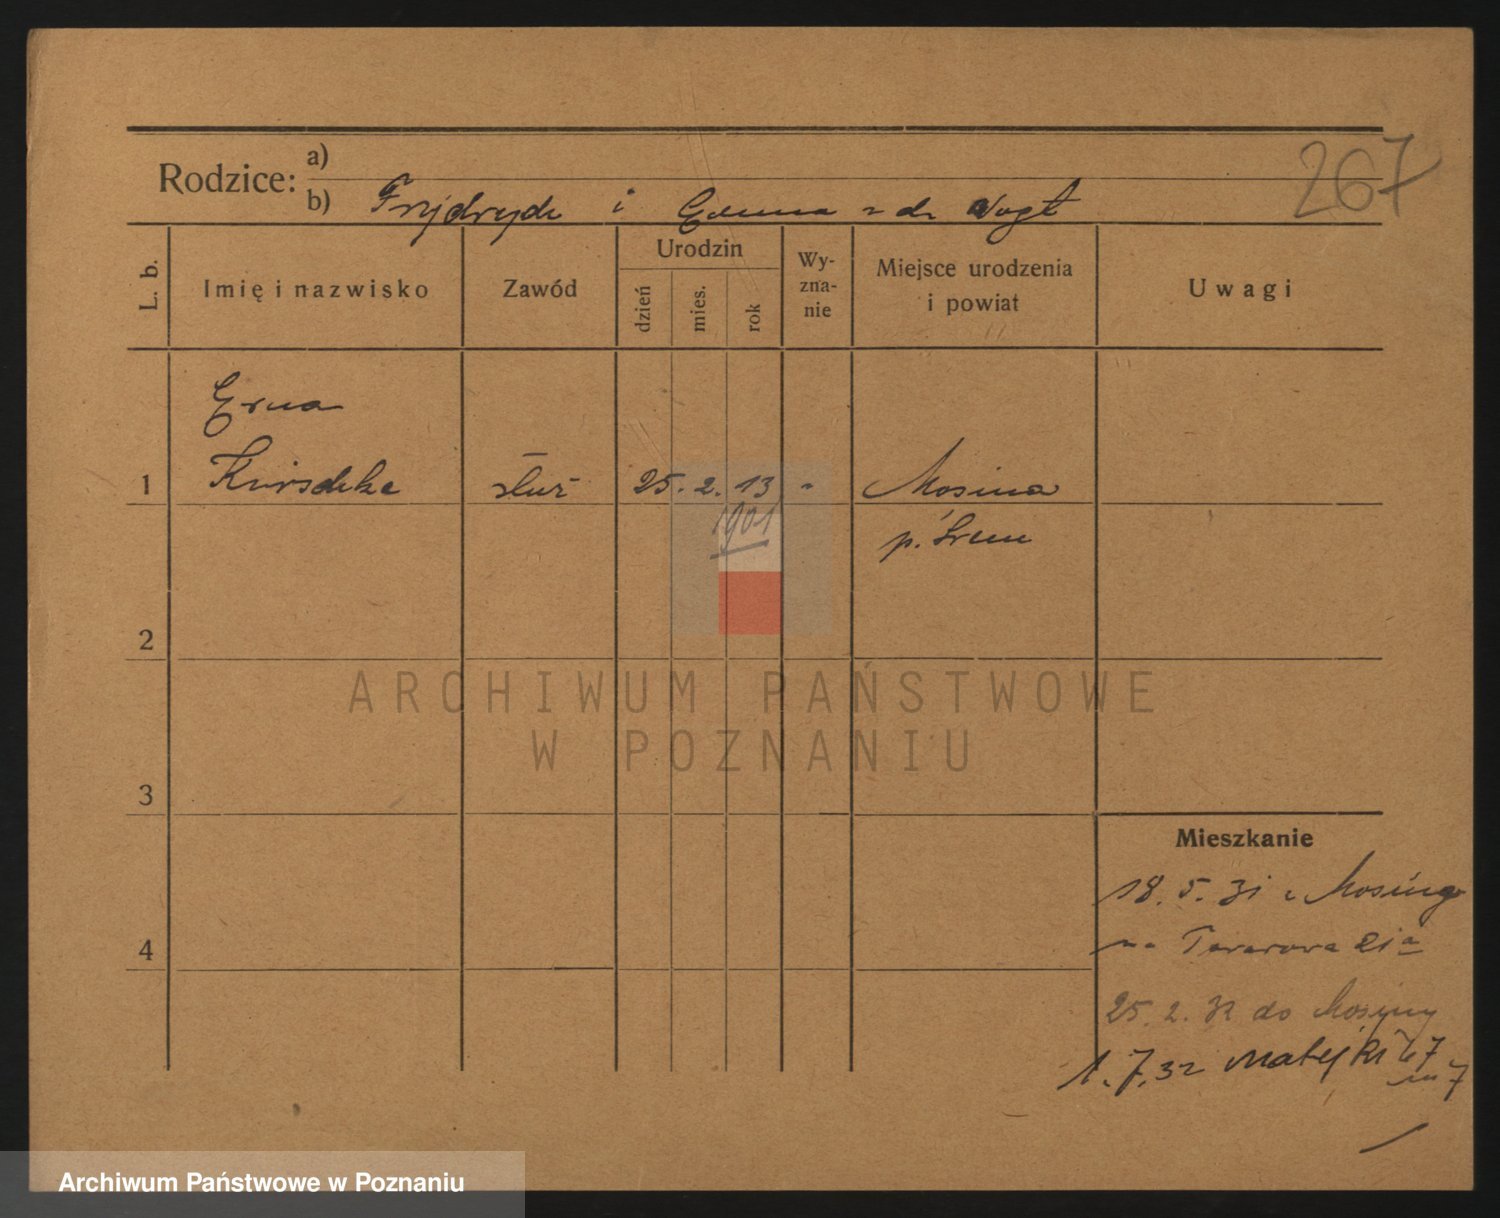 267
Rodzice:
a)
b) Frydrych i Emma z d. Vogt
L. b.
Imię i nazwisko
Zawód
Urodzin
dzień
mies.
rok
Wy-
zna-
nie
Miejsce urodzenia
i powiat
Uwagi
Erna
1 służ 25. 2. 13 Mosina
1901
p. Śrem
2
ARCHIWUM PAŃSTWOWE
W POZNANIU
3
Mieszkanie
18. 5. 31 z Mosiny
na 21a
4
25. 2. 32 do Mosiny
1. 7. 32 Matejki 67
m 7
Archiwum Państwowe w Poznaniu